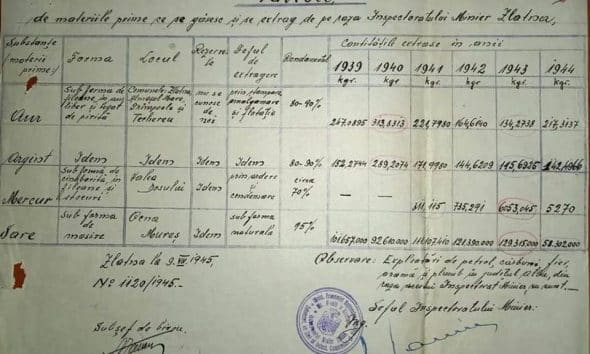 de materiile prime ce se găsesc și se extrag de pe raza Inspectoratului Minier Zlatna,
Substanțe (materii prime) Forma Locul Rezervele Felul de extragere Randamentul Cantitățile extrase în anii
1939 1940 1941 1942 1943 1944
kgr. kgr. kgr. kgr. kgr. kgr.
Aur Sub formă de filoane, în aur liber și legat de pirită Comunele Zlatna, Almașul Mare, și Techereu nu se cunosc de noi prin ștampare, amalgamare și flotație 80-90% 247.0895 312.8313 221.7980 164.6140 134.2738 217.3137
Argint Idem Idem Idem Idem 80-90% 152.2744 289.2074 171.9980 144.6209 145.6925
Mercur Sub formă de cinabru, în filoane și stocuri Valea Dosului Idem prin ardere și condensare circa 70% — — 311,115 735,291 6053,045 5270
Sare Sub formă de masive Ocna Mureș Idem subformă naturală 95% 101.657.000 92.610.000 111.107.410 121.390.000 129.315.000 58.302.000
Zlatna la 9.VII.1945.
No 1120/1945.-
Observare: Exploatări de petrol, cărbuni, fier,
aramă și plumb în județul Alba, din
raza acestui Inspectorat Minier, nu sunt.-
Subșef de birou,
Șeful Inspectoratului Minier
Ing.